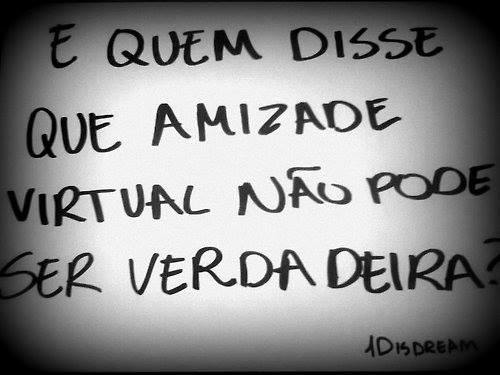 E QUEM DISSE
QUE AMIZADE
VIRTUAL NÃO PODE
SER VERDADEIRA?
1DISDREAM